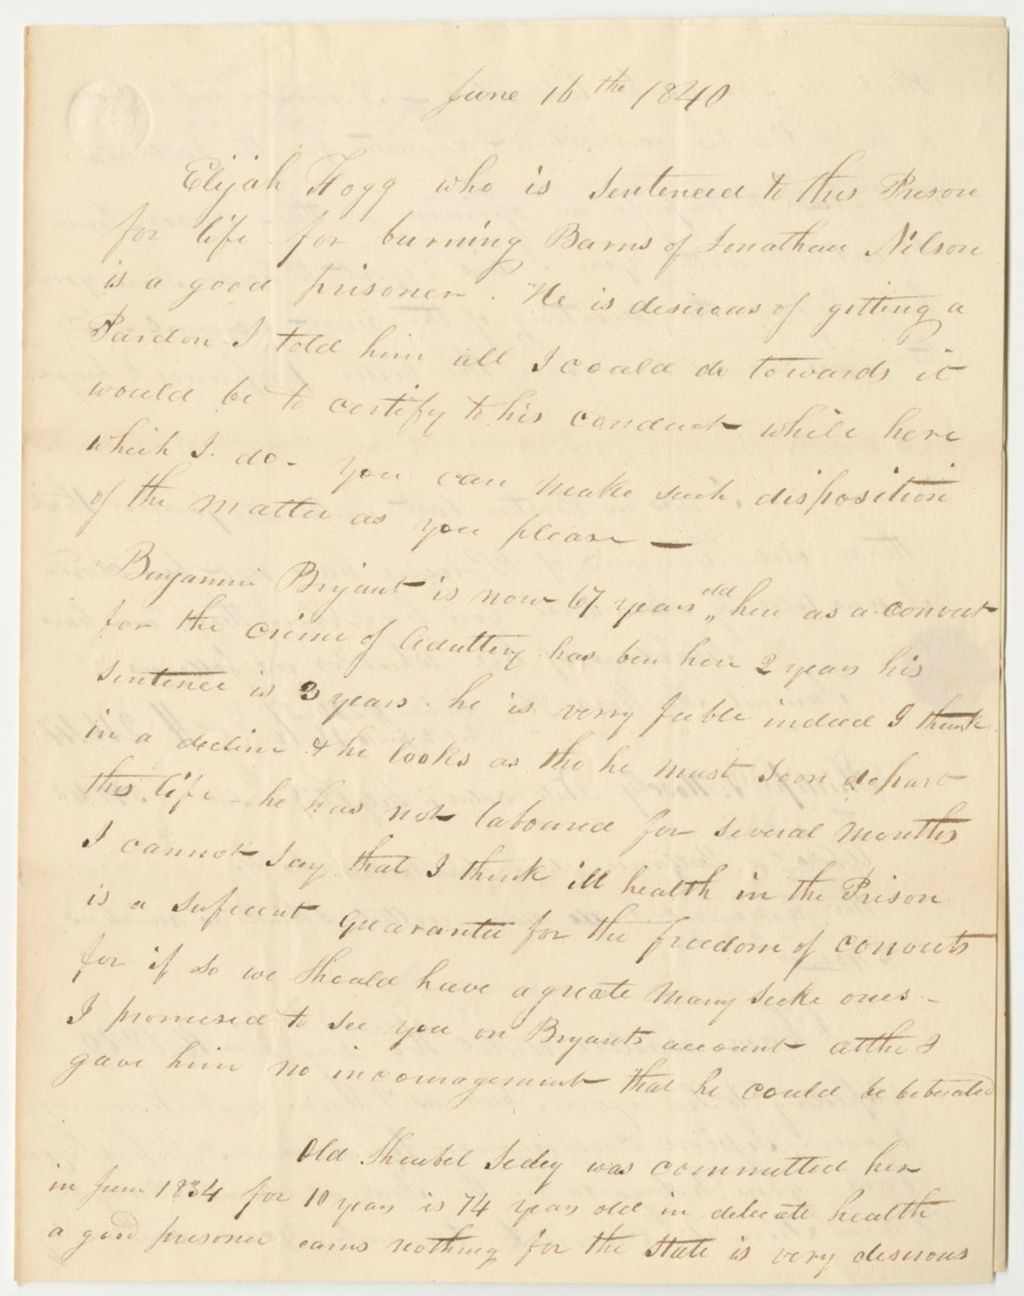 June 16th 1840
Elijah Hogg who is sentenced to this Prison
for life for burning Barns of Jonathan Nilson
is a good prisoner. He is desirous of gitting a
Pardon I told him all I could do towards it
would be to certify to his conduct while here
which I do - you can make such disposition
of the matter as you please —
Benjamin Bryant is now 67 years old here as a convict
for the crime of Adultery has ben here 2 years his
sentence is 3 years. he is verry feeble indeed I think
in a decline & he looks as tho he must soon depart
this life - he has not laboured for several months
I cannot say that I think ill health in the Prison
is a suficient guarantee for the freedom of convicts
for if so we should have a greate many sicke ones -
I promised to see you on Bryants account altho I
gave him no incouragement that he could be liberated
Old was committed here
in June 1834 for 10 years is 74 years old in delicate health
a good prisoner earns nothing for the State is very desirous